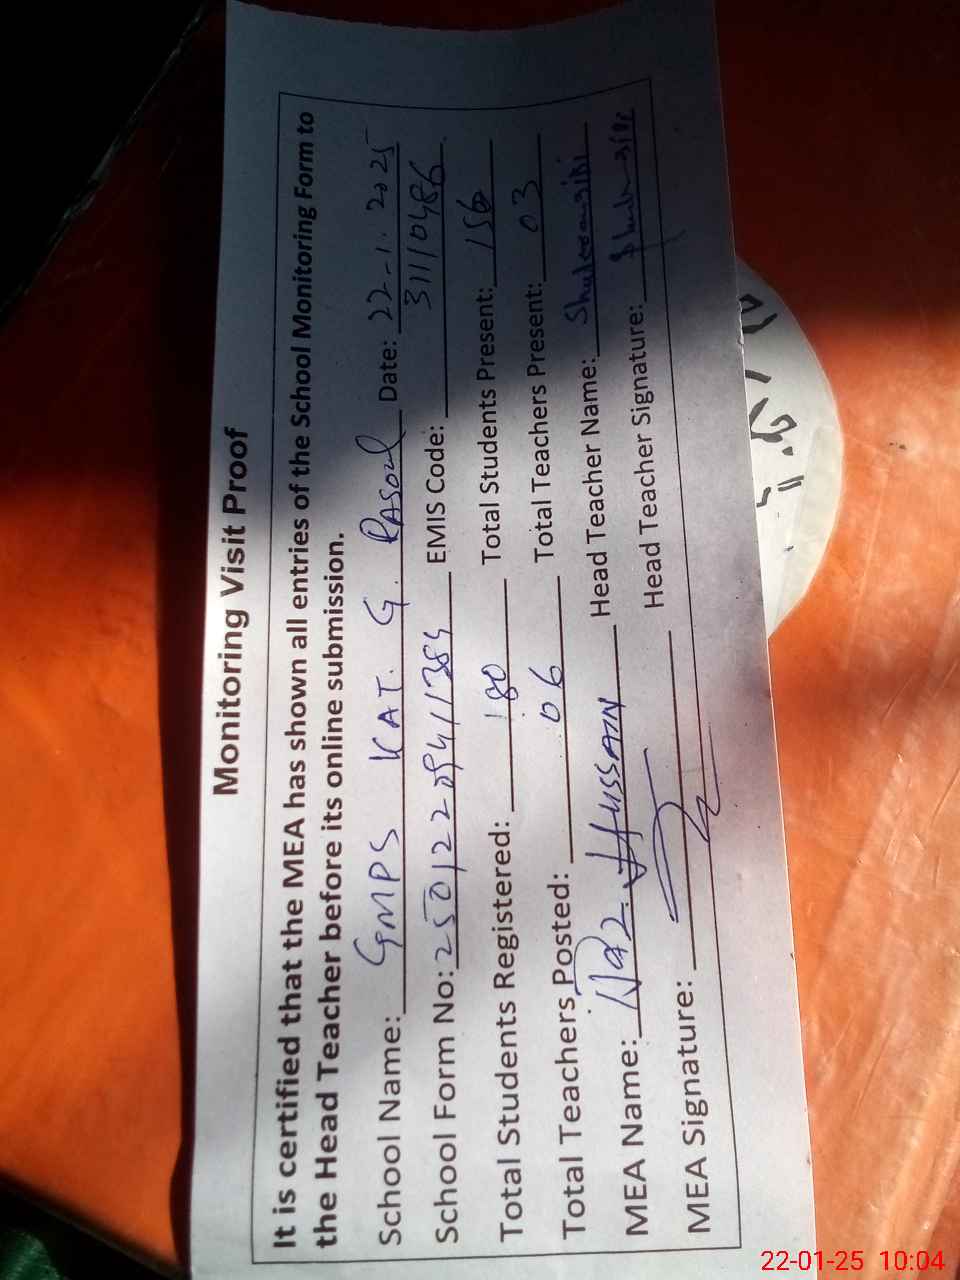 Monitoring Visit Proof
It is certified that the MEA has shown all entries of the School Monitoring Form to
the Head Teacher before its online submission.
School Name: GMPS KAT. G. RASOUL Date: 22-1-2025
School Form No: EMIS Code: 31110486
Total Students Registered: 180 Total Students Present: 156
Total Teachers Posted: 06 Total Teachers Present: 03
MEA Name: Naz Hussain Head Teacher Name:
MEA Signature: Head Teacher Signature:
22-01-25 10:04